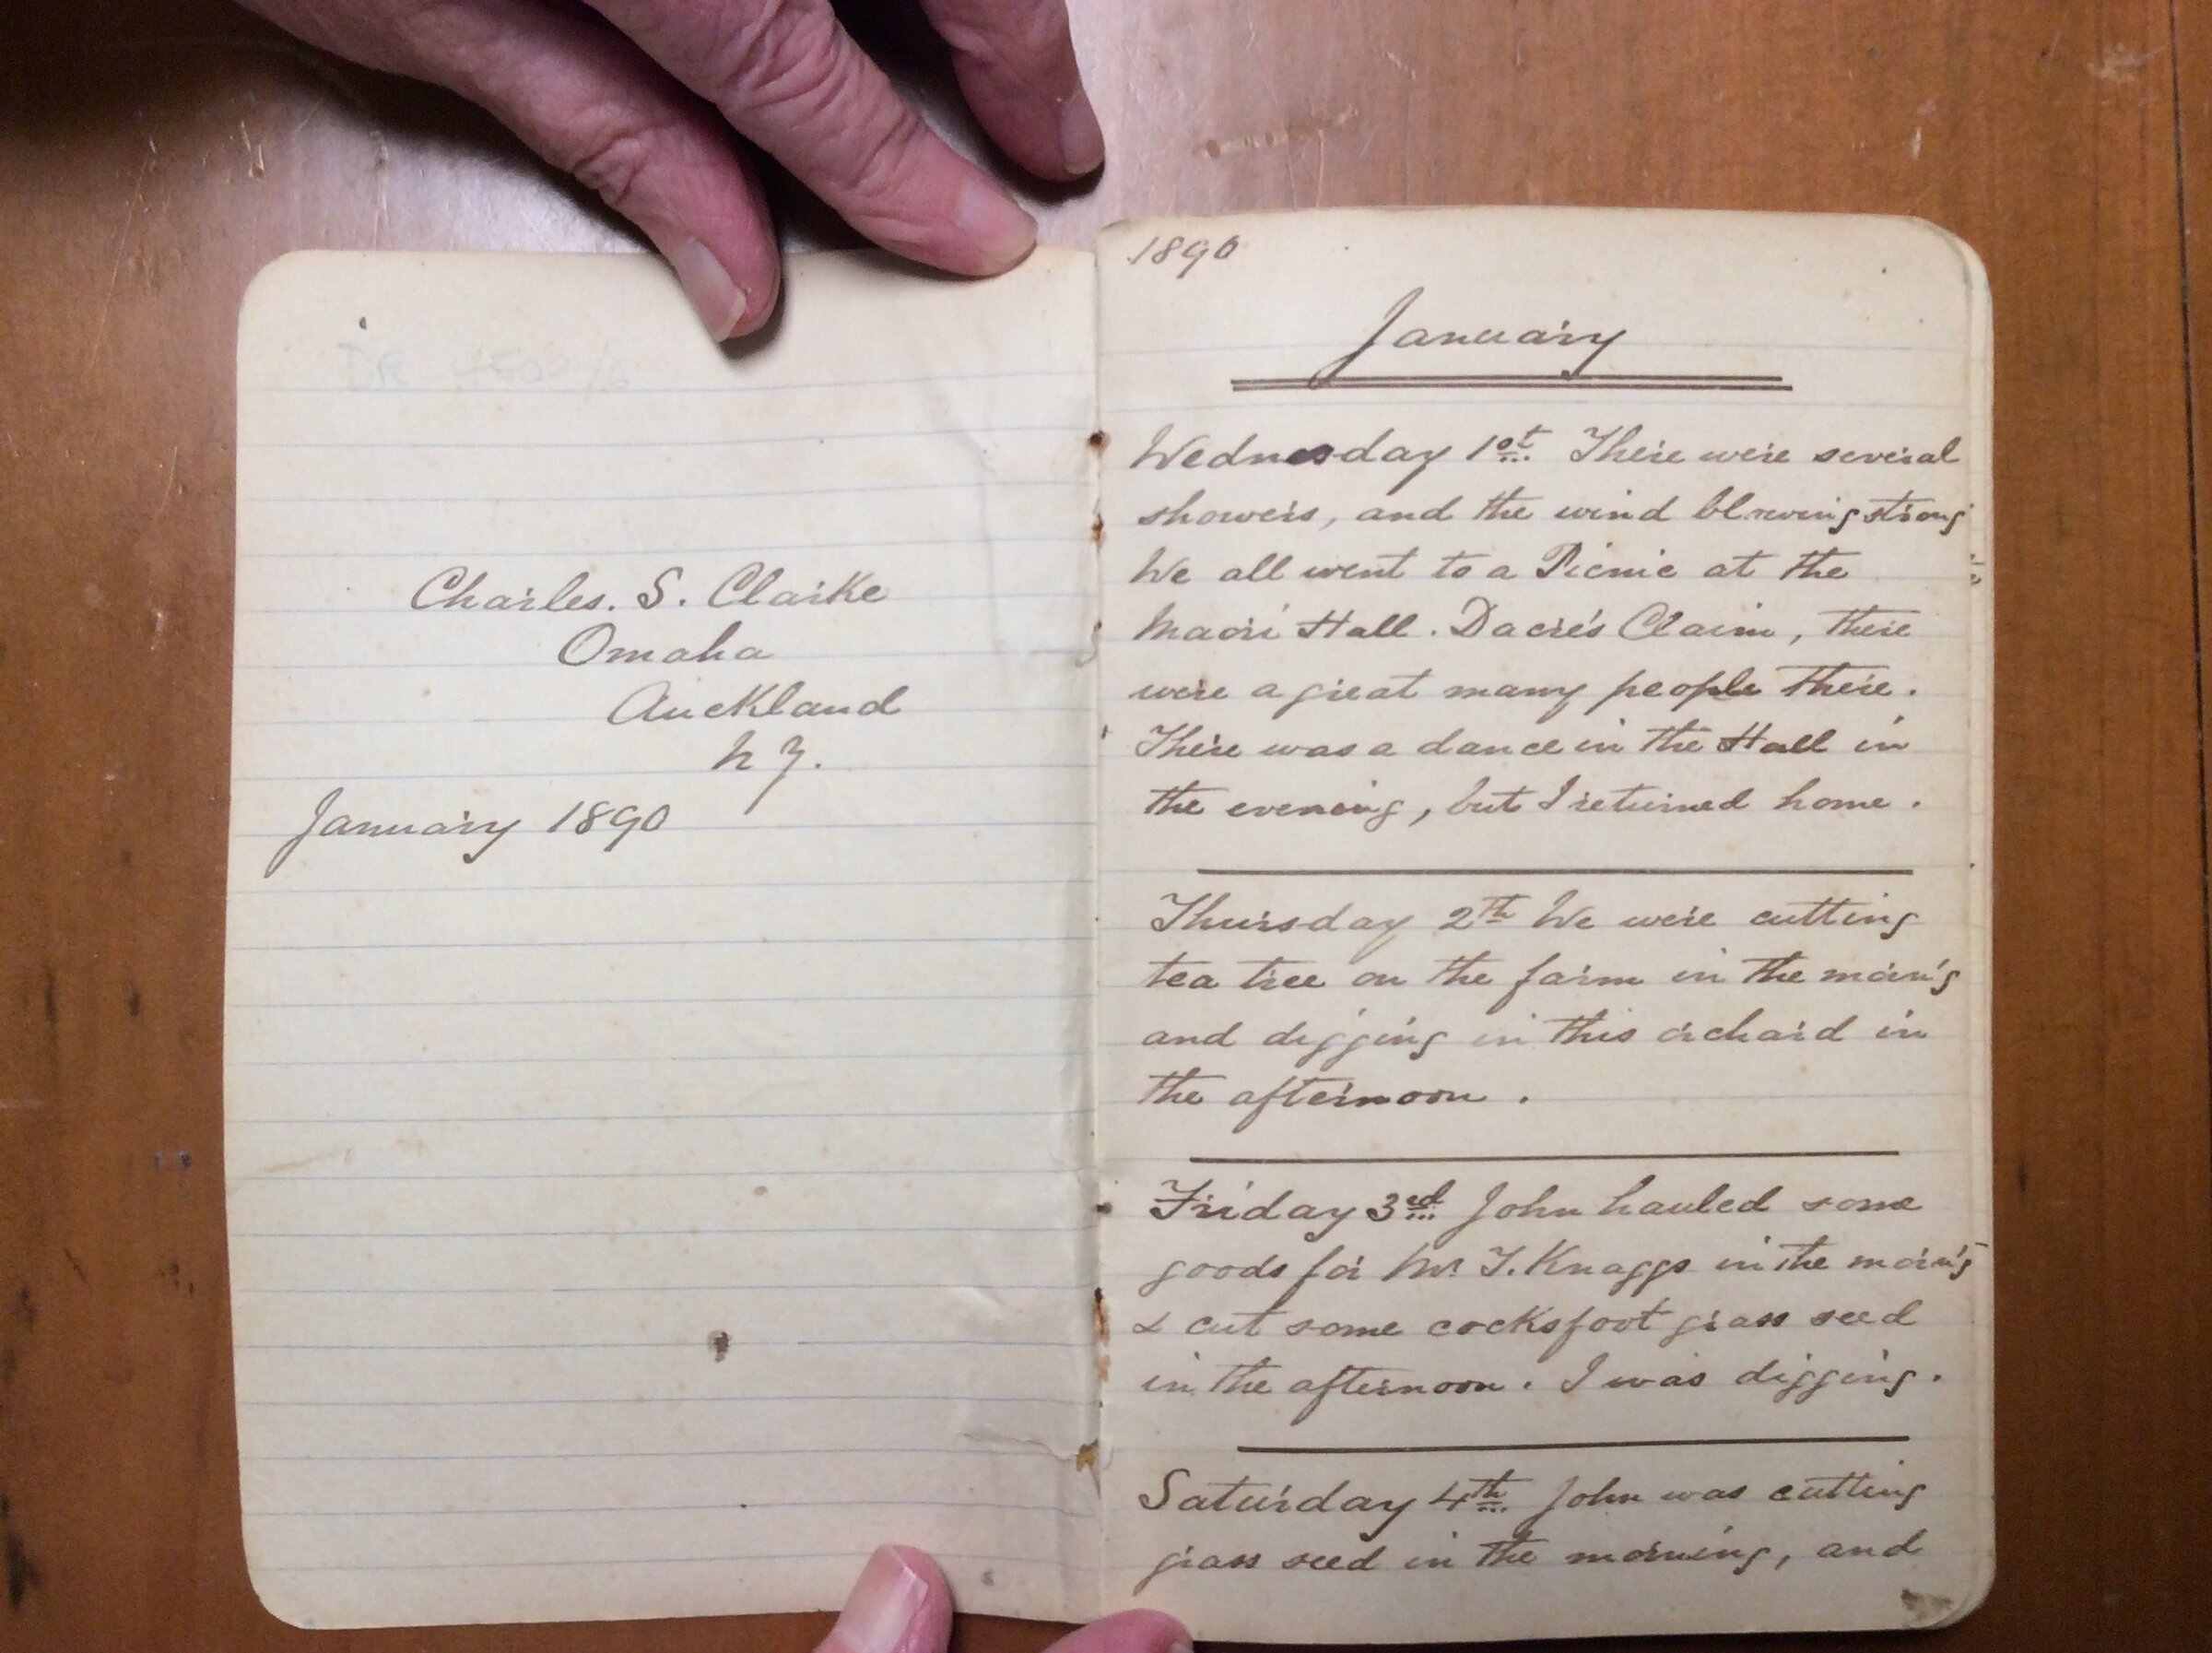 Charles. S. Clarke
Omaha
Auckland
N Z.
January 1890
1890
January
Wednesday 1st There were several
showers, and the wind blowing strong
We all went to a Picnic at the
Maori Hall. Dacre's Claim, there
were a great many people there.
There was a dance in the Hall in
the evening, but I returned home.
Thursday 2th We were cutting
tea tree on the farm in the morn'g
and digging in this orchard in
the afternoon.
Friday 3rd John hauled some
goods for Mr T. Knaggs in the morn'g
& cut some cocksfoot grass seed
in the afternoon. I was digging.
Saturday 4th John was cutting
grass seed in the morning, and